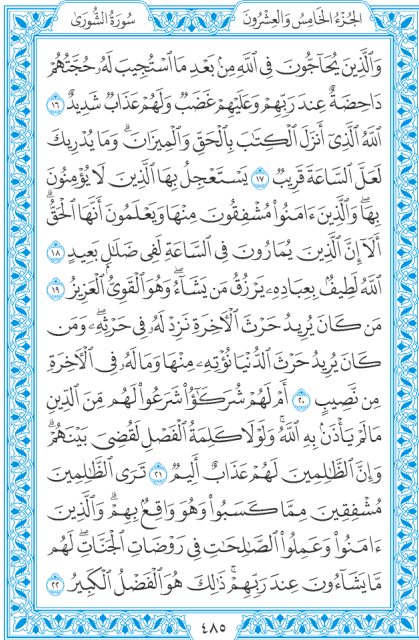 الجُزْءُ الخَامِسُ وَالعِشْرُونَ
سُورَةُ الشُّورَىٰ
وَٱلَّذِينَ يُحَآجُّونَ فِى ٱللَّهِ مِنۢ بَعْدِ مَا ٱسْتُجِيبَ لَهُۥ حُجَّتُهُمْ
دَاحِضَةٌ عِندَ رَبِّهِمْ وَعَلَيْهِمْ غَضَبٌ وَلَهُمْ عَذَابٌ شَدِيدٌ ١٦
ٱللَّهُ ٱلَّذِىٓ أَنزَلَ ٱلْكِتَٰبَ بِٱلْحَقِّ وَٱلْمِيزَانَ ۗ وَمَا يُدْرِيكَ
لَعَلَّ ٱلسَّاعَةَ قَرِيبٌ ١٧ يَسْتَعْجِلُ بِهَا ٱلَّذِينَ لَا يُؤْمِنُونَ
بِهَا ۖ وَٱلَّذِينَ ءَامَنُوا۟ مُشْفِقُونَ مِنْهَا وَيَعْلَمُونَ أَنَّهَا ٱلْحَقُّ ۗ
أَلَآ إِنَّ ٱلَّذِينَ يُمَارُونَ فِى ٱلسَّاعَةِ لَفِى ضَلَٰلٍۭ بَعِيدٍ ١٨
ٱللَّهُ لَطِيفٌۢ بِعِبَادِهِۦ يَرْزُقُ مَن يَشَآءُ ۖ وَهُوَ ٱلْقَوِىُّ ٱلْعَزِيزُ ١٩
مَن كَانَ يُرِيدُ حَرْثَ ٱلْءَاخِرَةِ نَزِدْ لَهُۥ فِى حَرْثِهِۦ ۖ وَمَن
كَانَ يُرِيدُ حَرْثَ ٱلدُّنْيَا نُؤْتِهِۦ مِنْهَا وَمَا لَهُۥ فِى ٱلْءَاخِرَةِ
مِن نَّصِيبٍ ٢٠ أَمْ لَهُمْ شُرَكَٰٓؤُا۟ شَرَعُوا۟ لَهُم مِّنَ ٱلدِّينِ
مَا لَمْ يَأْذَنۢ بِهِ ٱللَّهُ ۚ وَلَوْلَا كَلِمَةُ ٱلْفَصْلِ لَقُضِىَ بَيْنَهُمْ ۗ
وَإِنَّ ٱلظَّٰلِمِينَ لَهُمْ عَذَابٌ أَلِيمٌ ٢١ تَرَى ٱلظَّٰلِمِينَ
مُشْفِقِينَ مِمَّا كَسَبُوا۟ وَهُوَ وَاقِعٌۢ بِهِمْ ۗ وَٱلَّذِينَ
ءَامَنُوا۟ وَعَمِلُوا۟ ٱلصَّٰلِحَٰتِ فِى رَوْضَاتِ ٱلْجَنَّاتِ ۖ لَهُم
مَّا يَشَآءُونَ عِندَ رَبِّهِمْ ۚ ذَٰلِكَ هُوَ ٱلْفَضْلُ ٱلْكَبِيرُ ٢٢
٤٨٥